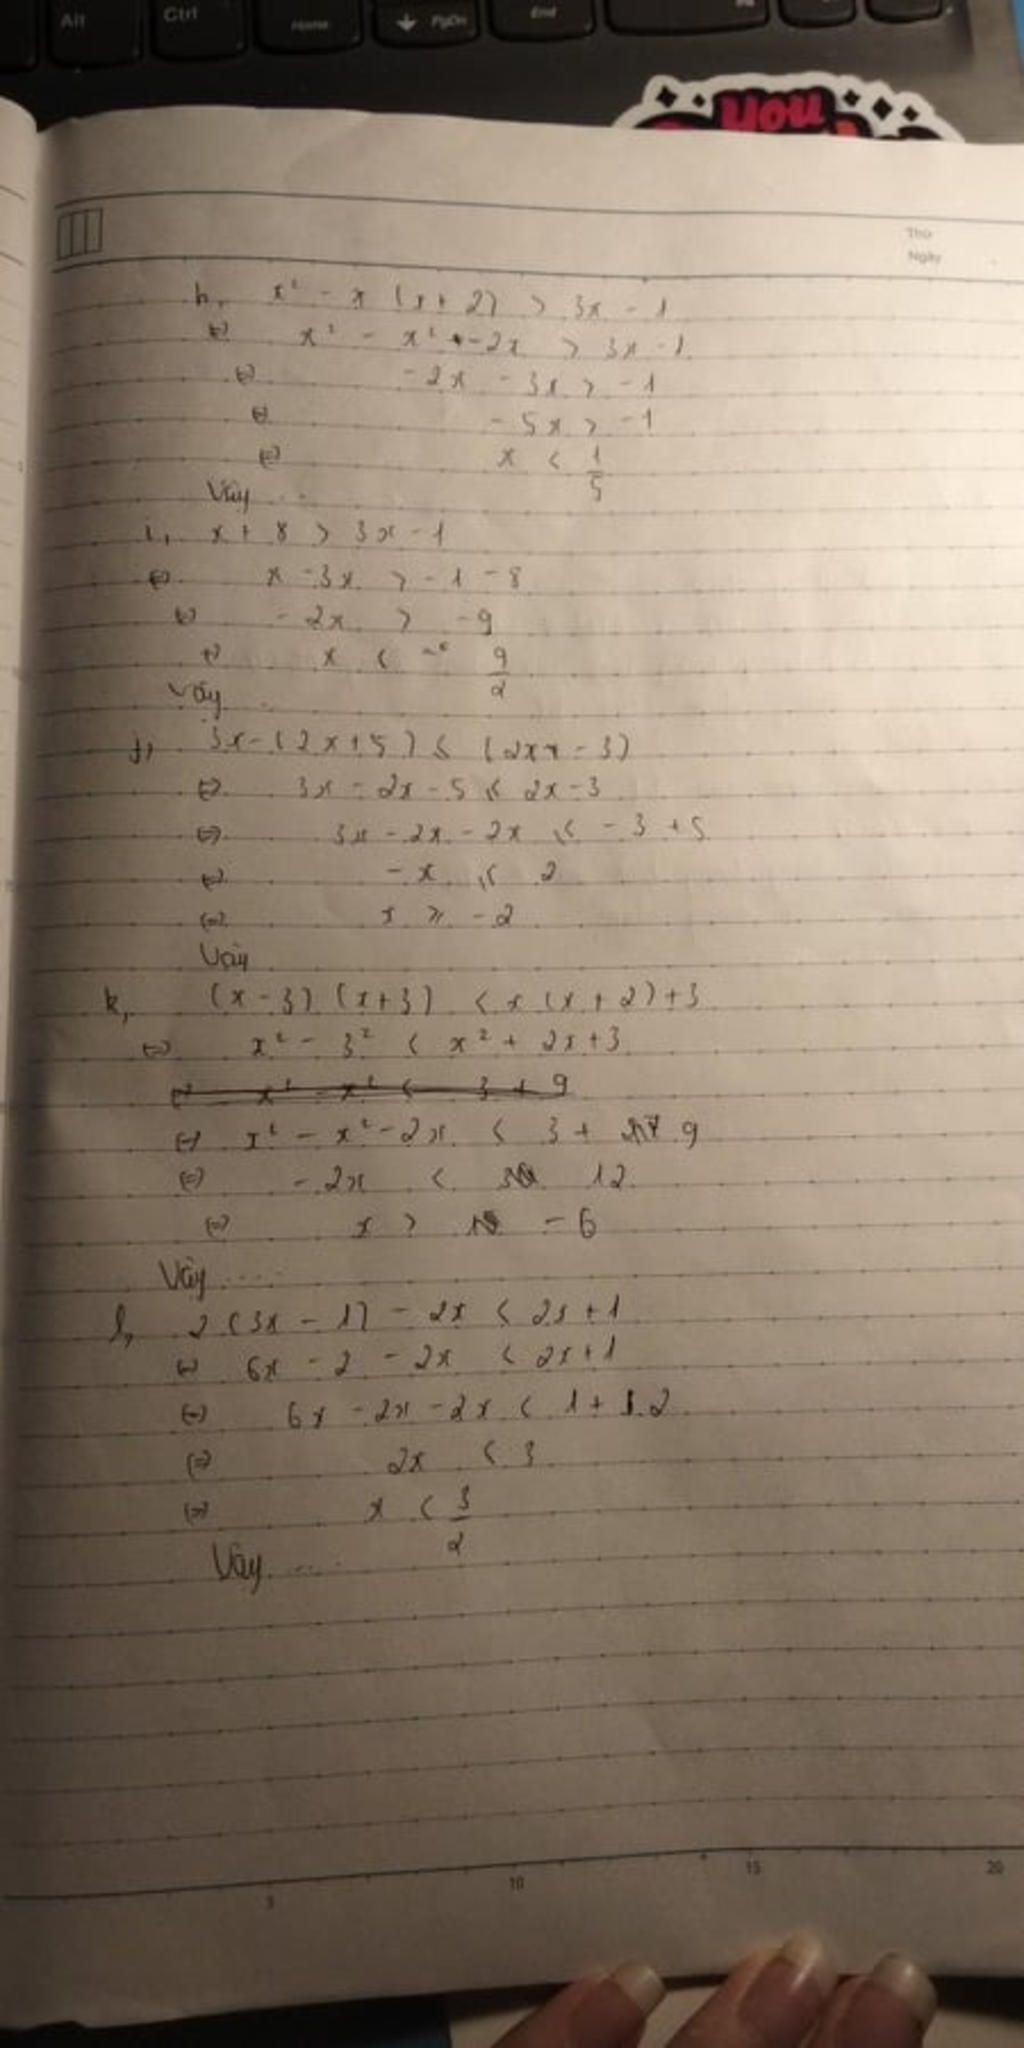 Alt Ctrl Home PgDn End
You
Thứ
Ngày
h, x² - x (x + 2) > 3x - 1
<=> x² - x² - 2x > 3x - 1
<=> -2x - 3x > -1
<=> -5x > -1
<=> x < 1/5
Vậy ...
i, x + 8 > 3x - 1
<=> x - 3x > -1 - 8
<=> -2x > -9
<=> x < 9/2
Vậy ...
j, 3x - (2x + 5) ≤ (2x - 3)
<=> 3x - 2x - 5 ≤ 2x - 3
<=> 3x - 2x - 2x ≤ -3 + 5
<=> -x ≤ 2
<=> x ≥ -2
Vậy
k, (x - 3) (x + 3) < x (x + 2) + 3
<=> x² - 3² < x² + 2x + 3
<=> x² - x² < 3 + 9
<=> x² - x² - 2x < 3 + 9
<=> -2x < 12
<=> x > -6
Vậy ....
l, 2 (3x - 1) - 2x < 2x + 1
<=> 6x - 2 - 2x < 2x + 1
<=> 6x - 2x - 2x < 1 + 2
<=> 2x < 3
<=> x < 3/2
Vậy ....
5 10 15 20